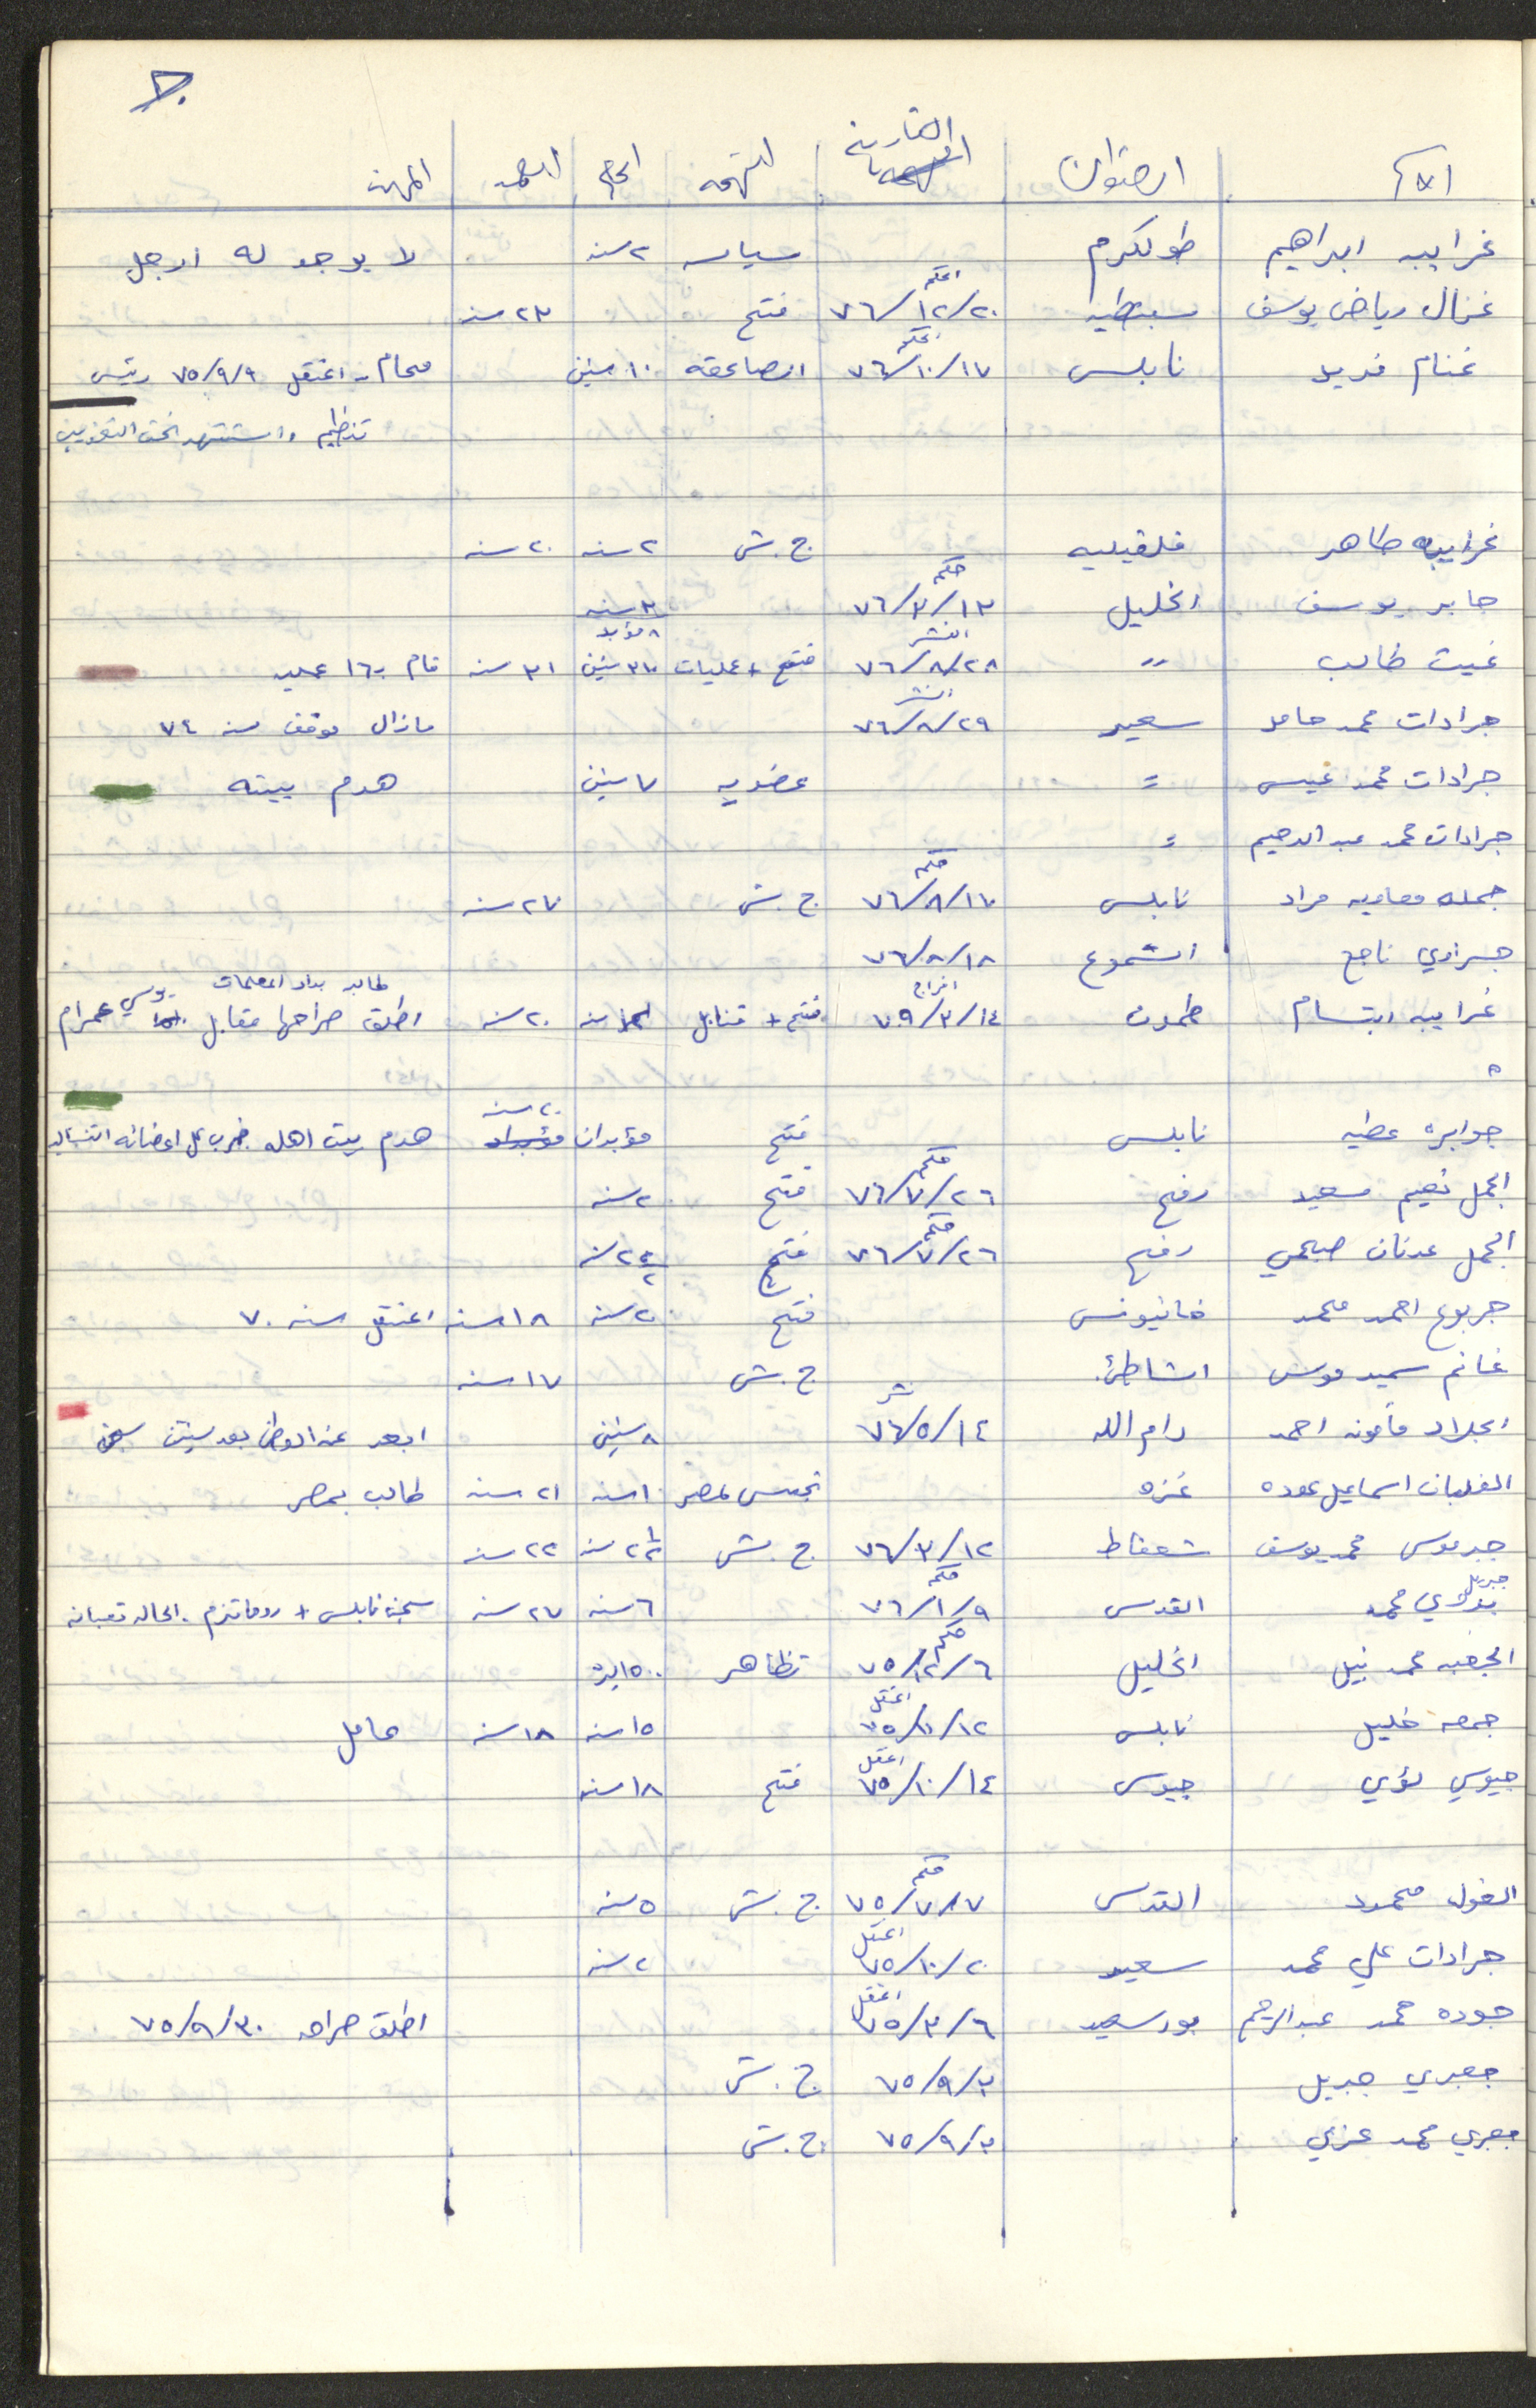 الاسم العنوان التاريخ التهمه الحكم العمر المهنه
غرايبه ابراهيم طولكرم سياسه ٢ سنه لا يوجد له ارجل
غزال رياض يوسف سبسطيه الحكم ٧٦/١٢/٢٠ فتح ٢٣ سنه
غنام فريد نابلس الحكم ٧٦/١٠/١٧ الصاعقه ١٠ سنين محام - اعتقل ٧٥/٩/٩ رئيس
تنظيم واستشهد تحت التعذيب
غرايبه طاهر قلقيليه ج.ش ٢ سنه ٢٠ سنه
جابر يوسف الخليل حكم ٧٦/٣/١٣ ٣ سنه
غيث طالب " النشر ٧٦/٨/٢٨ فتح + عمليات ٨ مؤبد ٣٠ سنين ٣١ سنه قام بـ ١٦ عمليه
جرادات محمد حامد سعير النشر ٧٦/٨/٢٩ مازال موقف منذ ٧٤
جرادات محمد عيسى = عضويه ٧ سنين هدم بيته
جرادات محمد عبد الرحيم =
جمله معاويه مراد نابلس حكم ٧٦/٨/١٧ ج.ش ٢٧ سنه
جسراوي ناجح السموع ٧٦/٨/١٨
غرايبه ابتسام طمون افراج ٧٩/٣/١٤ فتح + قنابل ٢٠ سنه طالبه بدار المعلمات اطلق صراحها مقابل عمرام
جوابره عطيه نابلس فتح مؤبدان ٢٠ سنه هدم بيت اهله ضرب على اعضائه التناسليه
الجمل نعيم سعيد رفح حكم ٧٦/٧/٢٦ فتح ٢٠ سنه
الجمل عدنان صبحي رفح حكم ٧٦/٧/٢٦ فتح
جربوع احمد محمد خانيونس فتح ٢٠ سنه ١٨ سنه اعتقل سنه ٧٠
غانم سمير موسى الشاطئ ج.ش ١٧ سنه
الجلاد مأمونه احمد رام الله نشر ٧٦/٥/١٤ ٨ سنين ابعد عن الوطن بعد سنتين سجن
الغلبان اسماعيل عوده غزه تجسس لمصر ١٠ سنه ٢١ سنه طالب بمصر
جبر موسى محمد يوسف شعفاط ٧٦/٣/١٢ ج.ش ٢ سنه ٢٢ سنه
جبريل محمد القدس حكم ٧٦/١/٩ ٦ سنه ٢٧ سنه سجن نابلس + روماتزم. الحاله تعبانه
الجعبه محمد نبيل الخليل حكم ٧٥/١٢/٦ تظاهر ١٥٠٠ ليره
جمعه خليل نابلس اعتقل ٧٥/١٠/١٢ ١٥ سنه ١٨ سنه عامل
جيوسي لؤي جيوس اعتقل ٧٥/١٠/١٤ فتح ١٨ سنه
الغول محمود القدس حكم ٧٥/٧/١٧ ج.ش ٥ سنه
جرادات علي محمد سعير اعتقل ٧٥/١٠/٢٠ ٢ سنه
جوده محمد عبدالرحيم بورسعيد اعتقل ٧٥/٣/٦ اطلق صراحه ٧٥/٩/٣٠
جعبري جبريل ٧٥/٩/٣ ج.ش
جعبري محمد عزمي ٧٥/٩/٣ ج.ش